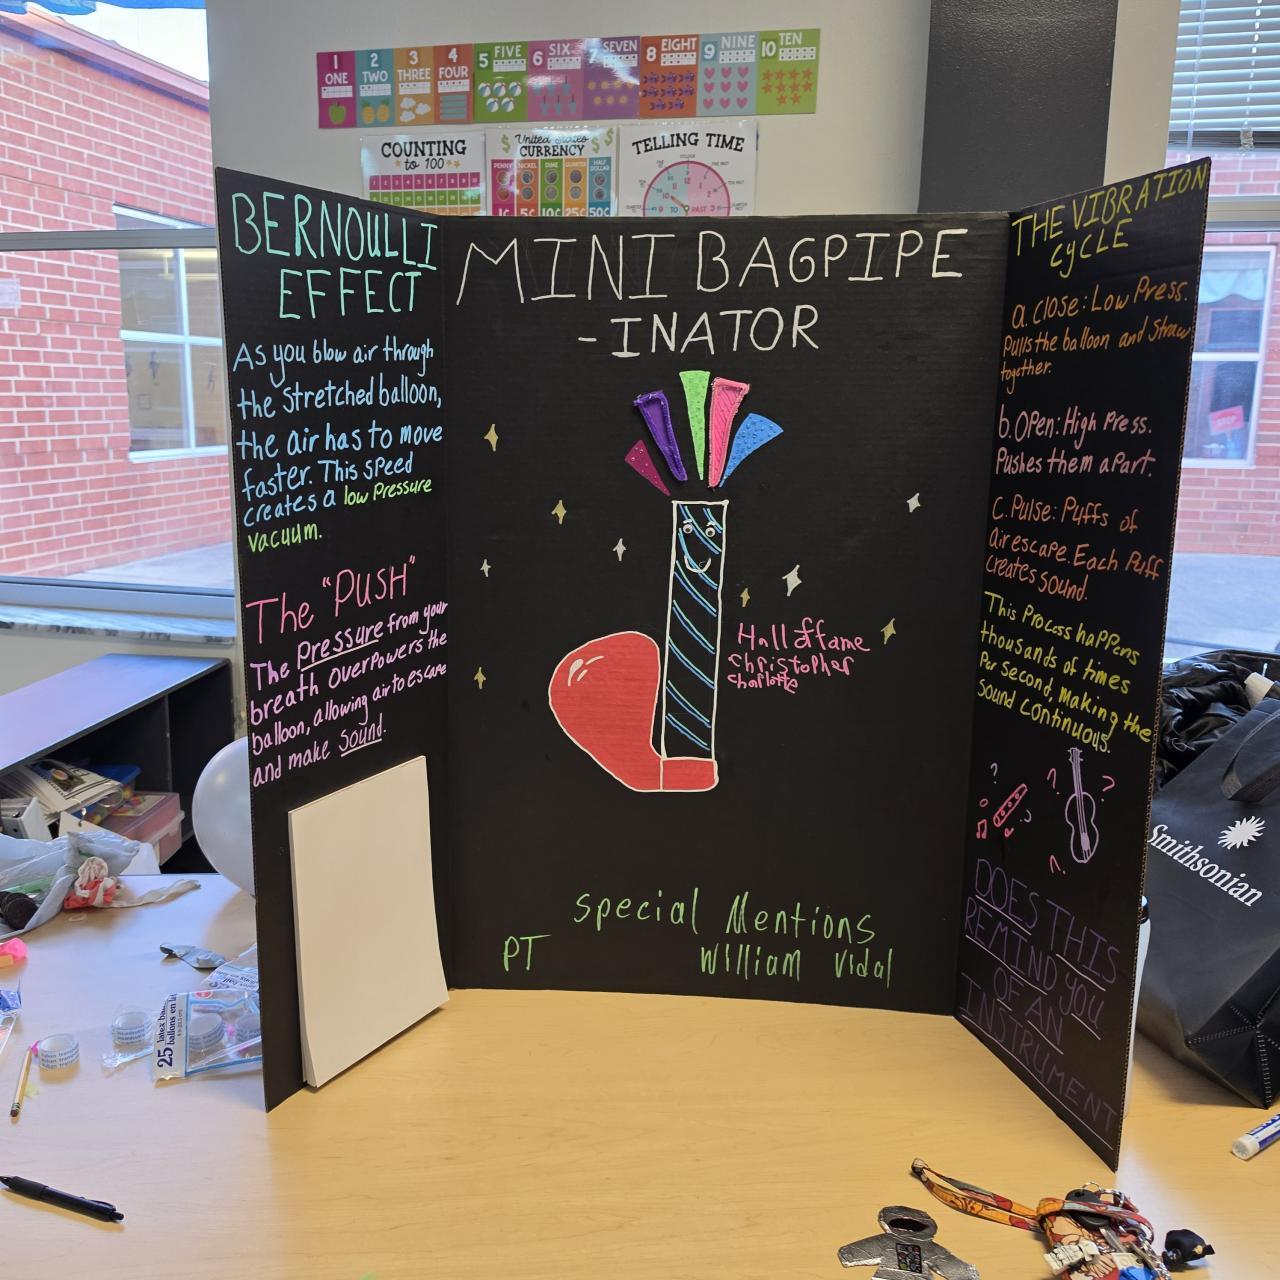 1 ONE
2 TWO
3 THREE
4 FOUR
5 FIVE
6 SIX
7 SEVEN
8 EIGHT
9 NINE
10 TEN
COUNTING
to 100
$ United States $
CURRENCY
PENNY NICKEL DIME QUARTER HALF DOLLAR
1¢ 5¢ 10¢ 25¢ 50¢
TELLING TIME
BERNOULLI
EFFECT
As you blow air through
the stretched balloon,
the air has to move
faster. This speed
creates a low Pressure
vacuum.
The "PUSH"
The Pressure from your
breath overpowers the
balloon, allowing air to escape
and make sound.
MINI BAGPIPE
-INATOR
Hall of fame
christopher
charlotte
special Mentions
PT William Vidal
THE VIBRATION
CYCLE
a. Close: Low Press.
Pulls the balloon and straw
together.
b. Open: High Press.
Pushes them apart.
c. Pulse: Puffs of
air escape. Each Puff
creates sound.
This Process happens
thousands of times
Per second, making the
sound continuous.
? ? ? ?
DOES THIS
REMIND YOU
OF AN
INSTRUMENT
Smithsonian
25 latex ba
ballons en l
STOP